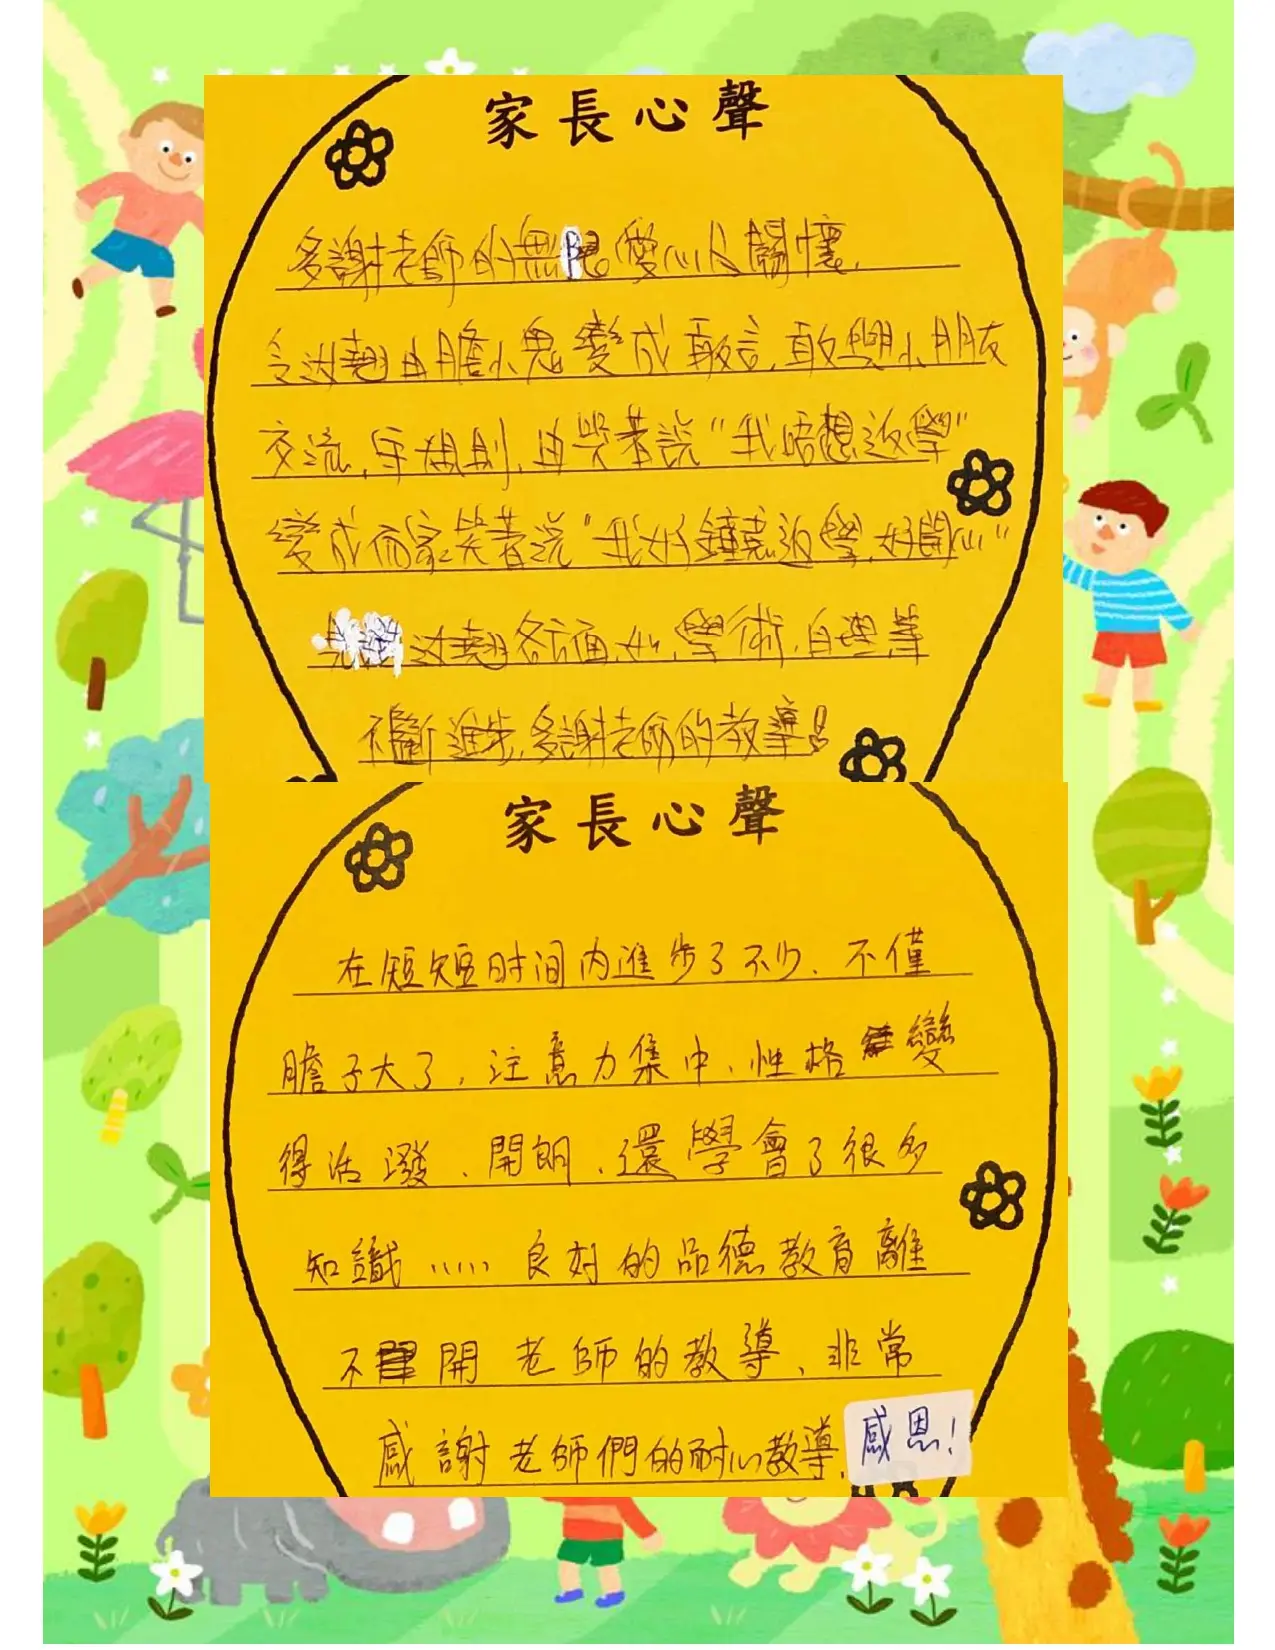 家長心聲
多謝老師的無限愛心及關懷,
令汶翹由膽小鬼變成敢言,敢與小朋友
交流,守規則,由哭著說"我唔想返學"
變成而家笑著說"我好鍾意返學,好開心"
汶翹各方面,如,學術,自理等
不斷進步,多謝老師的教導!
家長心聲
在短短时间内進步了不少、不僅
膽子大了,注意力集中、性格變
得活潑、開朗、還學會了很多
知識…… 良好的品德教育離
不開老師的教導、非常
感謝老師們的耐心教導,感恩!